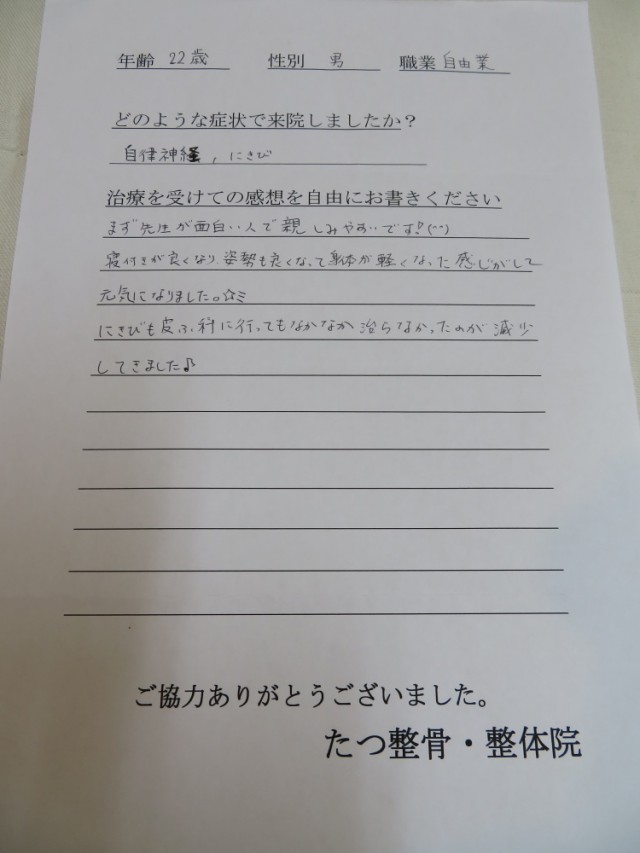 年齢 22歳 性別 男 職業 自由業
どのような症状で来院しましたか？
自律神経, にきび
治療を受けての感想を自由にお書きください
まず先生が面白い人で親しみやすいです!(^^)
寝付きが良くなり、姿勢も良くなって身体が軽くなった感じがして
元気になりました。☆ミ
にきびも皮ふ科に行ってもなかなか治らなかったのが減少
してきました♪
ご協力ありがとうございました。
たつ整骨・整体院